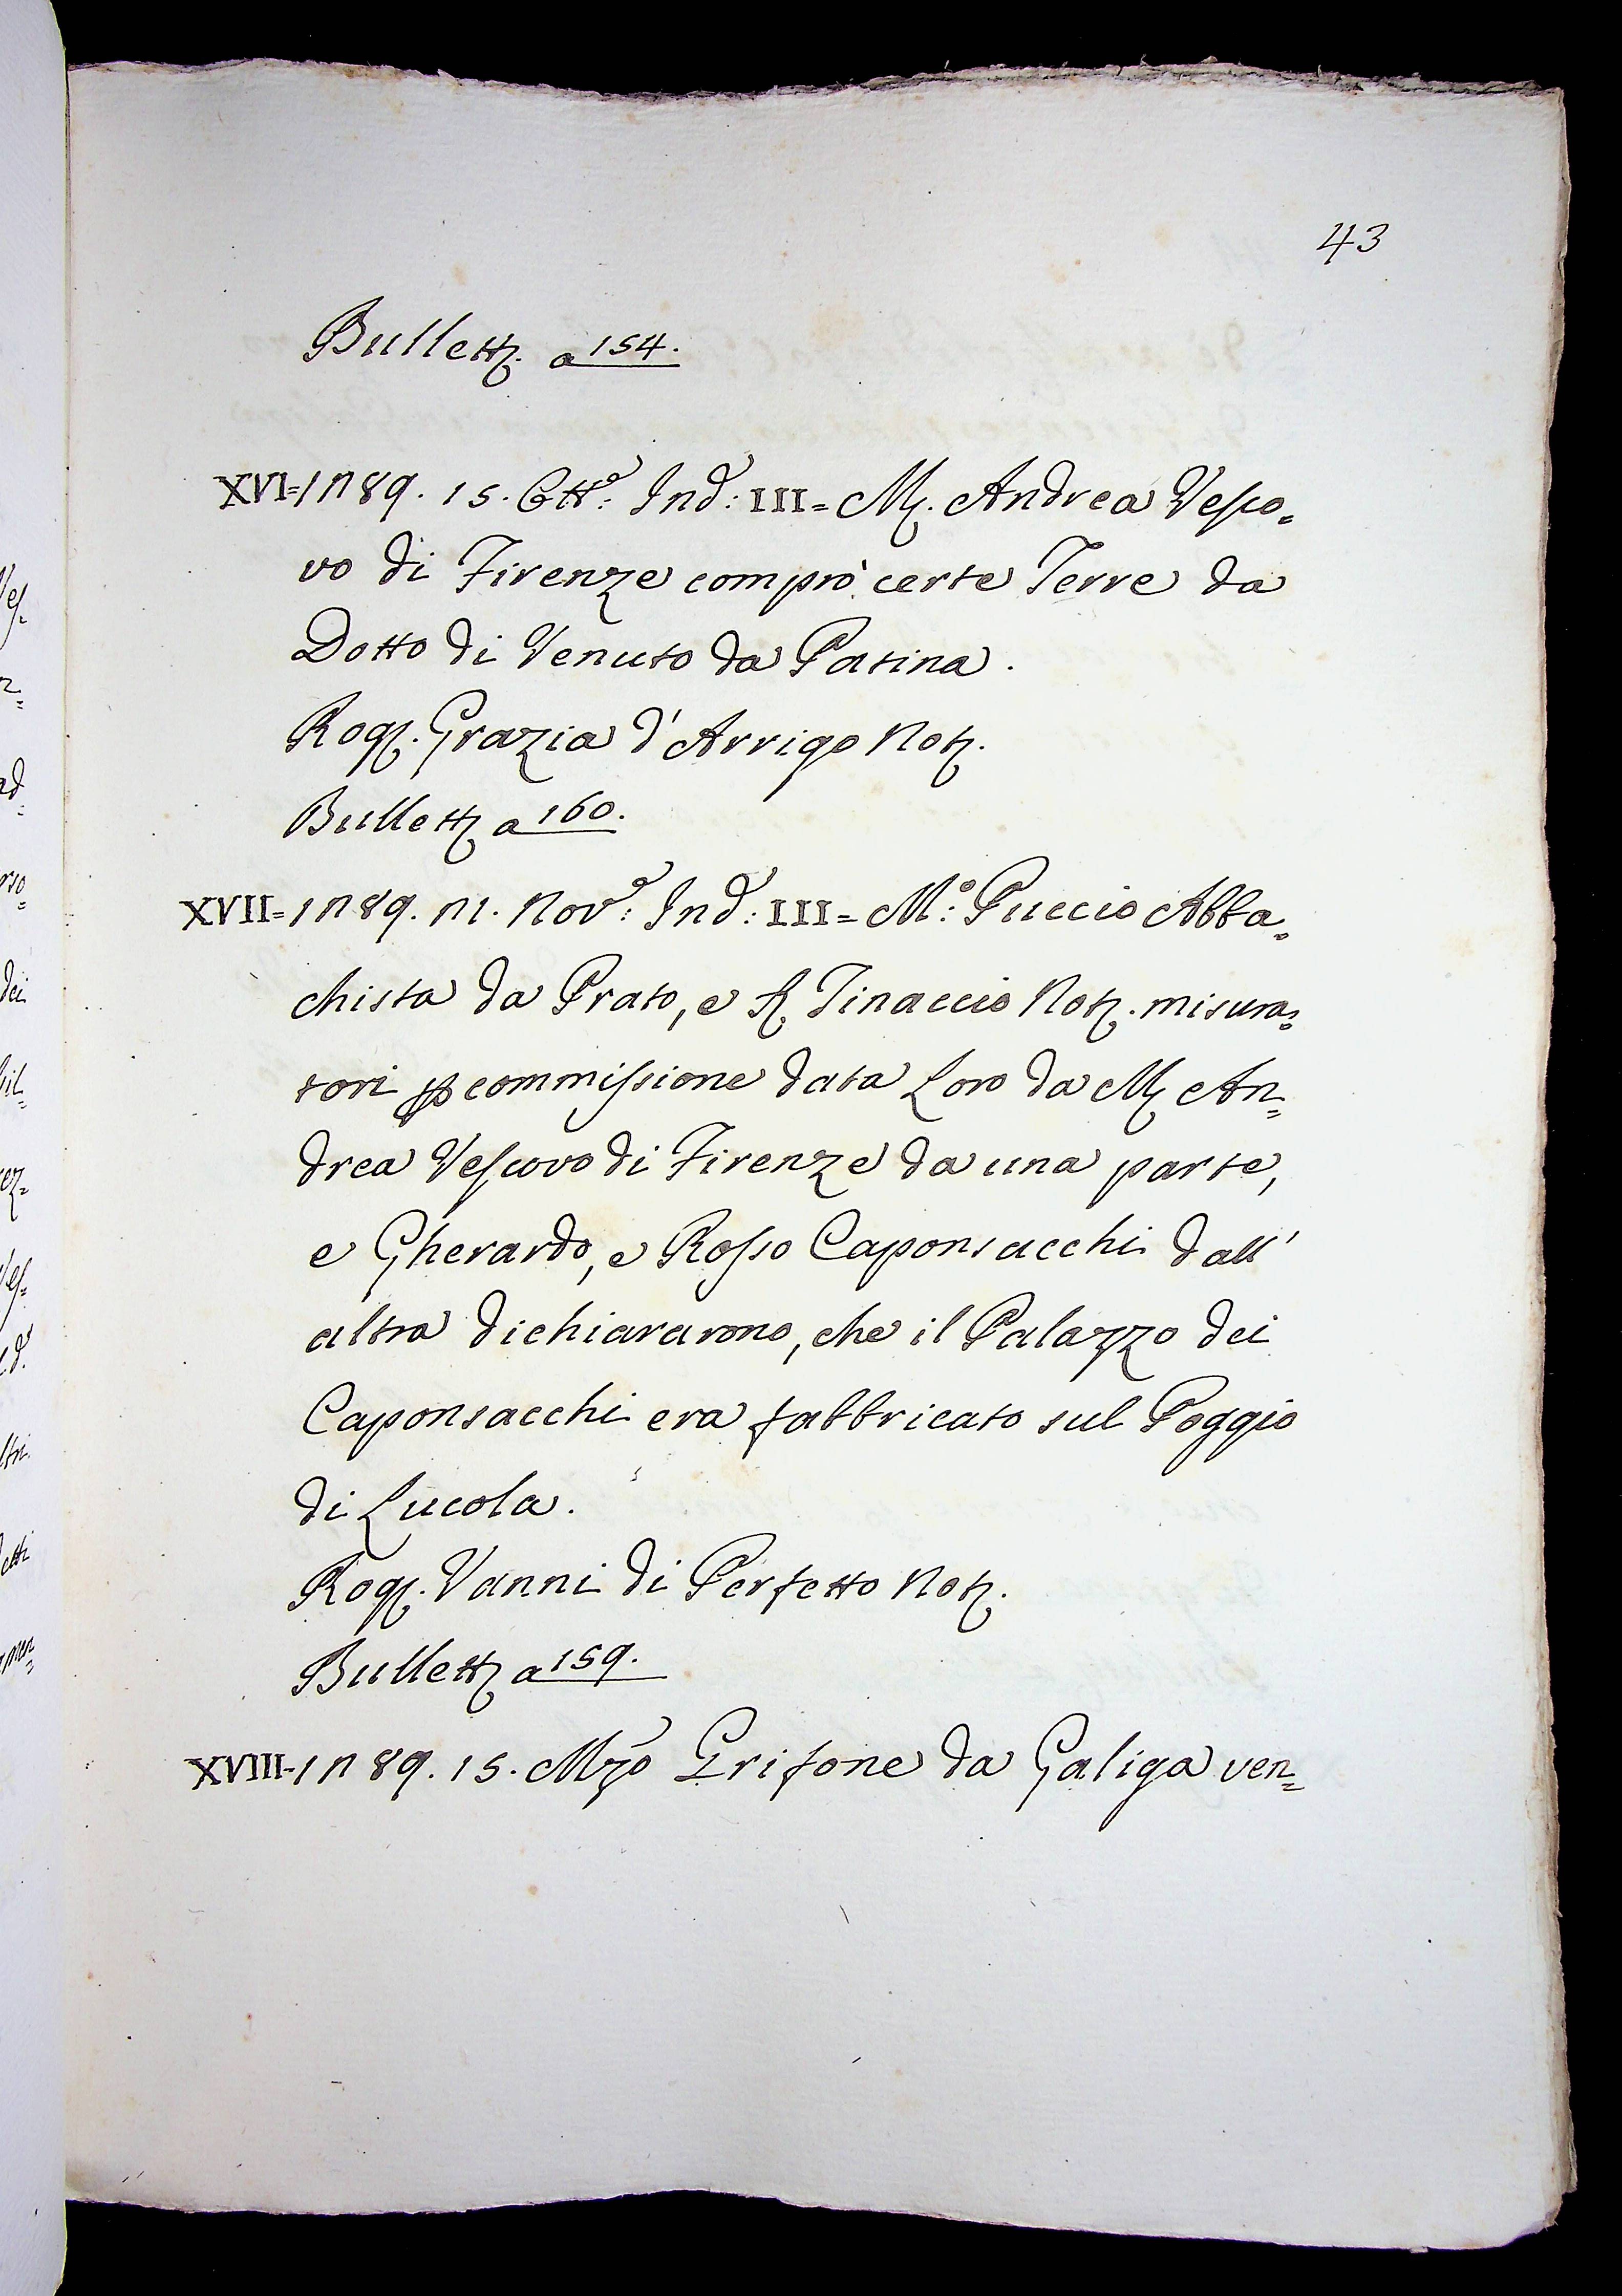 43
Bullett. a 154.
XVI=1289. 15. Ottᵉ: Ind: III= M. Andrea Vesco=
vo di Firenze comprò certe Terre da
Dotto di Venuto da Patina.
Rog. Grazia d'Arrigo Not.
Bullett a 160.
XVII=1289. 21. Novᵉ: Ind: III= Mº: Puccio Abba=
chista da Prato, e S. Tinaccio Not. misura=
tori p commissione data Loro da M An=
drea Vescovo di Firenze da una parte,
e Gherardo, e Rosso Caponsacchi dall'
altra dichiararono, che il Palazzo dei
Caponsacchi era fabbricato sul Poggio
di Lucola.
Rog. Vanni di Perfetto Not.
Bullett a 159.
XVIII-1289. 15. Mzo Grifone da Galiga ven=